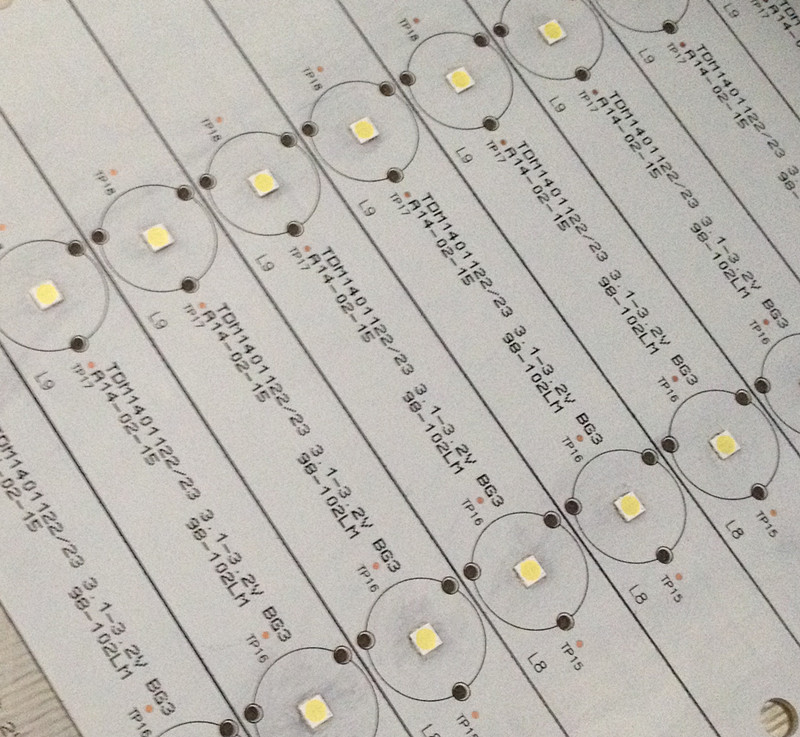 TP18
TP18
TP18
TP18
L9
TP17
TDM1401122/23 3.1-3.2V BG3
A14-02-15 98-102LM
TP16
L9
TP17
TDM1401122/23 3.1-3.2V BG3
A14-02-15 98-102LM
TP16
L9
TP17
TDM1401122/23 3.1-3.2V BG3
A14-02-15 98-102LM
TP16
L9
TP17
TDM1401122/23 3.1-3.2V BG3
A14-02-15 98-102LM
TP16
L9
TP17
TDM1401122/23 3.1-3.2V BG3
A14-02-15 98-102LM
TP16
L9
TP17
TDM1401122/23 3.1-3.2V BG3
A14-02-15 98-102LM
TP16
L9
TP17
TDM1401122/23
A14-02-15
L9
TP17
3.1-3.2V BG3
98-102LM
TP16
L8
TP15
L8
TP15
L8
TP15